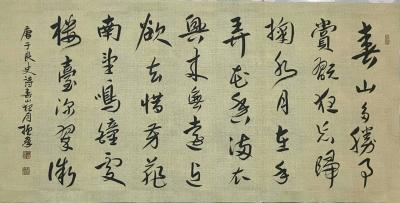 春山多勝事
賞翫夜忘歸
掬水月在手
弄花香滿衣
興來無遠近
欲去惜芳菲
南望鳴鐘處
樓臺深翠微
唐于良史詩春山夜月